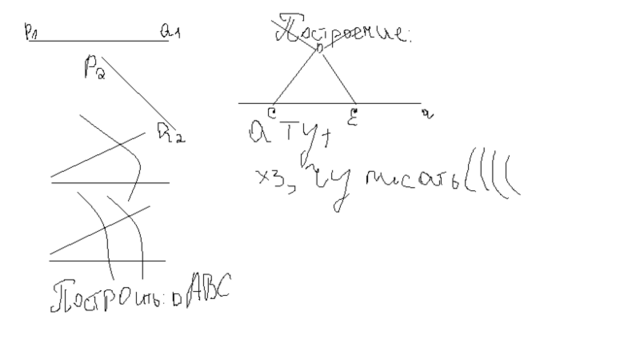 P1 Q1
P2
R2
Построить: △ABC
Построение:
D
C E a
а тут
хз, чу писать((((